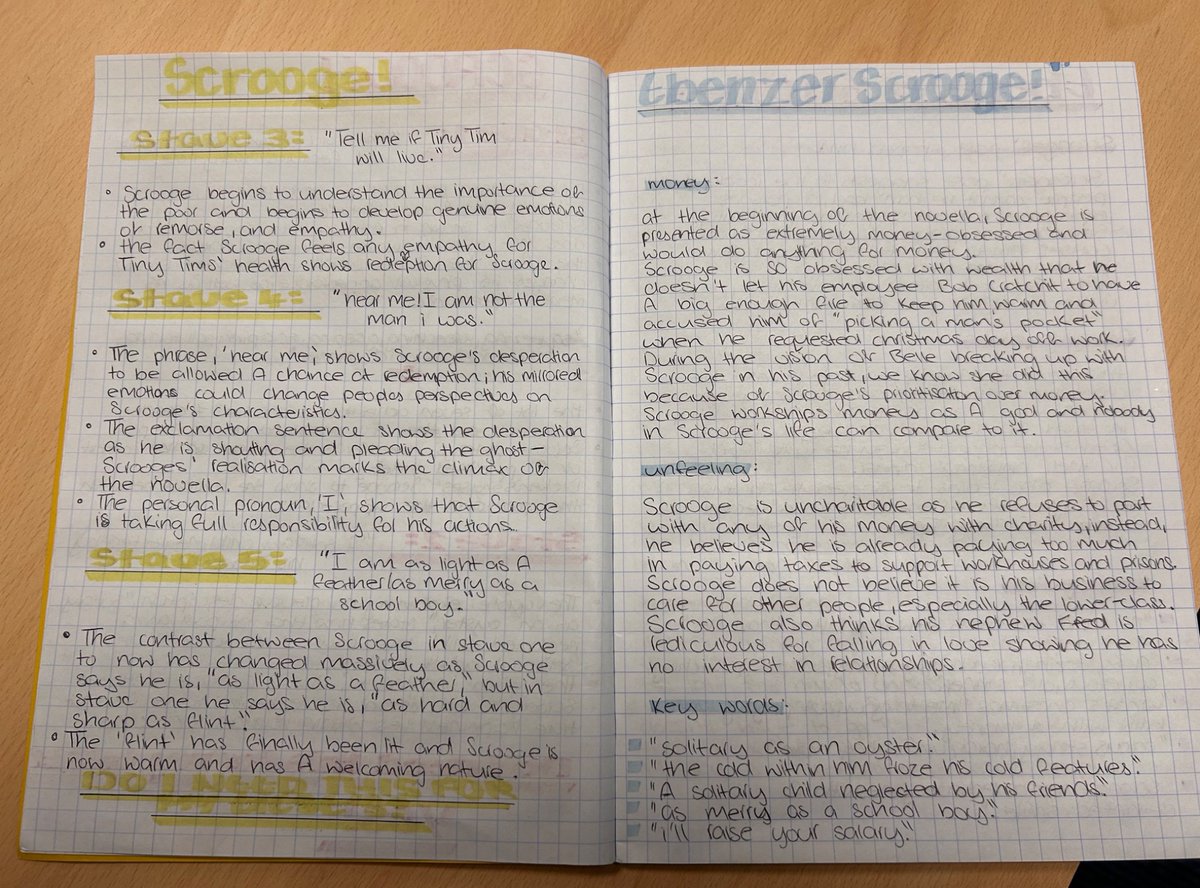 Scrooge!
Stave 3:
"Tell me if Tiny Tim
will live."
Scrooge begins to understand the importance of
the poor and begins to develop genuine emotions
of remorse, and empathy.
the fact Scrooge feels any empathy for
Tiny Tims' health shows redemption for Scrooge.
Stave 4:
"hear me! I am not the
man i was."
The phrase, 'hear me,' shows Scrooge's desperation
to be allowed A chance at redemption; his mirrored
emotions could change peoples perspectives on
Scrooge's characteristics.
The exclamation sentence shows the desperation
as he is shouting and pleading the ghost -
Scrooges' realisation marks the climax of
the novella.
The personal pronoun, 'I', shows that Scrooge
is taking full responsibility for his actions.
Stave 5:
"I am as light as A
feather/as merry as a
school boy."
The contrast between Scrooge in stave one
to now has changed massively as, Scrooge
says he is, "as light as a feather," but in
stave one he says he is, "as hard and
sharp as flint."
The 'flint' has finally been lit and Scrooge is
now warm and has A welcoming nature.
DO I NEED THIS FOR
Ebenzer Scrooge!
money:
at the beginning of the novella, Scrooge is
presented as extremely money-obsessed and
would do anything for money.
Scrooge is so obsessed with wealth that he
doesn't let his employee Bob Cratchit to have
A big enough fire to keep him warm and
accused him of "picking a man's pocket"
when he requested christmas day off work.
During the vision of Belle breaking up with
Scrooge in his past, we know she did this
because of Scrouge's prioritisation over money.
Scrooge workships money as A god and nobody
in Scrooge's life can compare to it.
unfeeling:
Scrooge is uncharitable as he refuses to part
with any of his money with charity, instead,
he believes he is already paying too much
in paying taxes to support workhouses and prisons.
Scrooge does not believe it is his business to
care for other people, especially the lower-class.
Scrooge also thinks his nephew Fred is
rediculous for falling in love showing he has
no interest in relationships.
Key words:
"solitary as an oyster."
"the cold within him froze his cold features."
"A solitary child neglected by his friends."
"as merry as a school boy."
"i'll raise your salary."